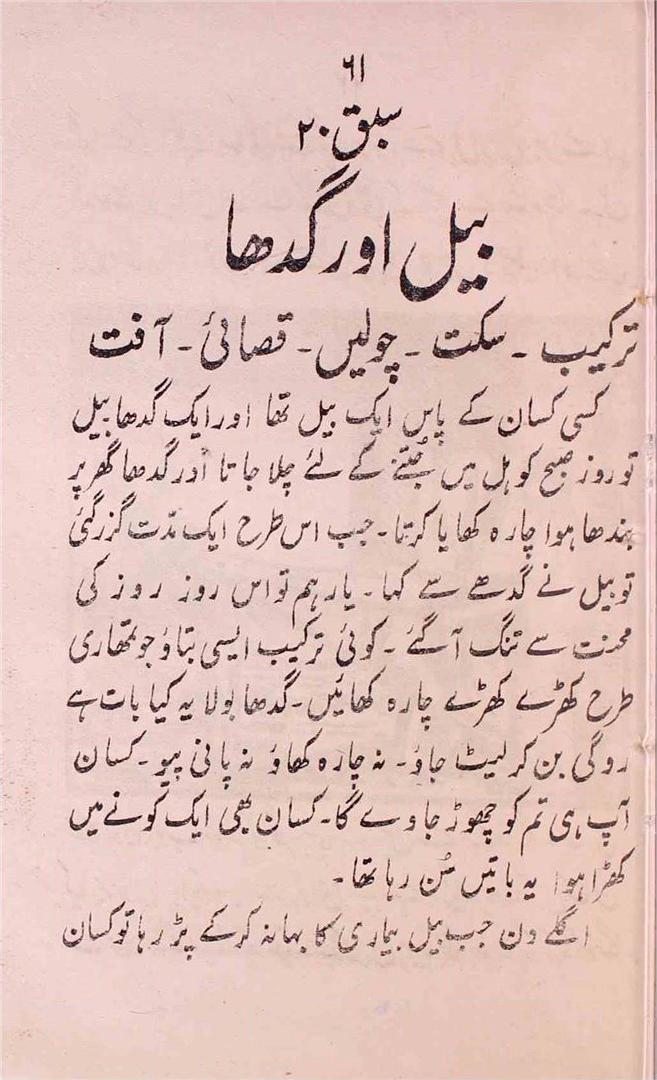 ۶۱
سبق ۲۰
بیل اور گدھا
ترکیب ۔ سکت ۔ چولیں ۔ قصائی ۔ آفت
کسی کسان کے پاس ایک بیل تھا اور ایک گدھا بیل
تو روز صبح کو ہل میں جُتنے کے لئے چلا جاتا اور گدھا گھر پر
بندھا ہوا چارہ کھایا کرتا ۔ جب اس طرح ایک مدّت گزر گئی
تو بیل نے گدھے سے کہا ۔ یار ہم تو اس روز روز کی
محنت سے تنگ آ گئے ۔ کوئی ترکیب ایسی بتاؤ جو تمھاری
طرح کھڑے کھڑے چارہ کھائیں ۔ گدھا بولا یہ کیا بات ہے
روگی بن کر لیٹ جاؤ ۔ نہ چارہ کھاؤ نہ پانی پیو ۔ کسان
آپ ہی تم کو چھوڑ جاوے گا ۔ کسان بھی ایک کونے میں
کھڑا ہوا یہ باتیں سُن رہا تھا ۔
اگلے دن جب بیل بیماری کا بہانہ کر کے پڑ رہا تو کسان